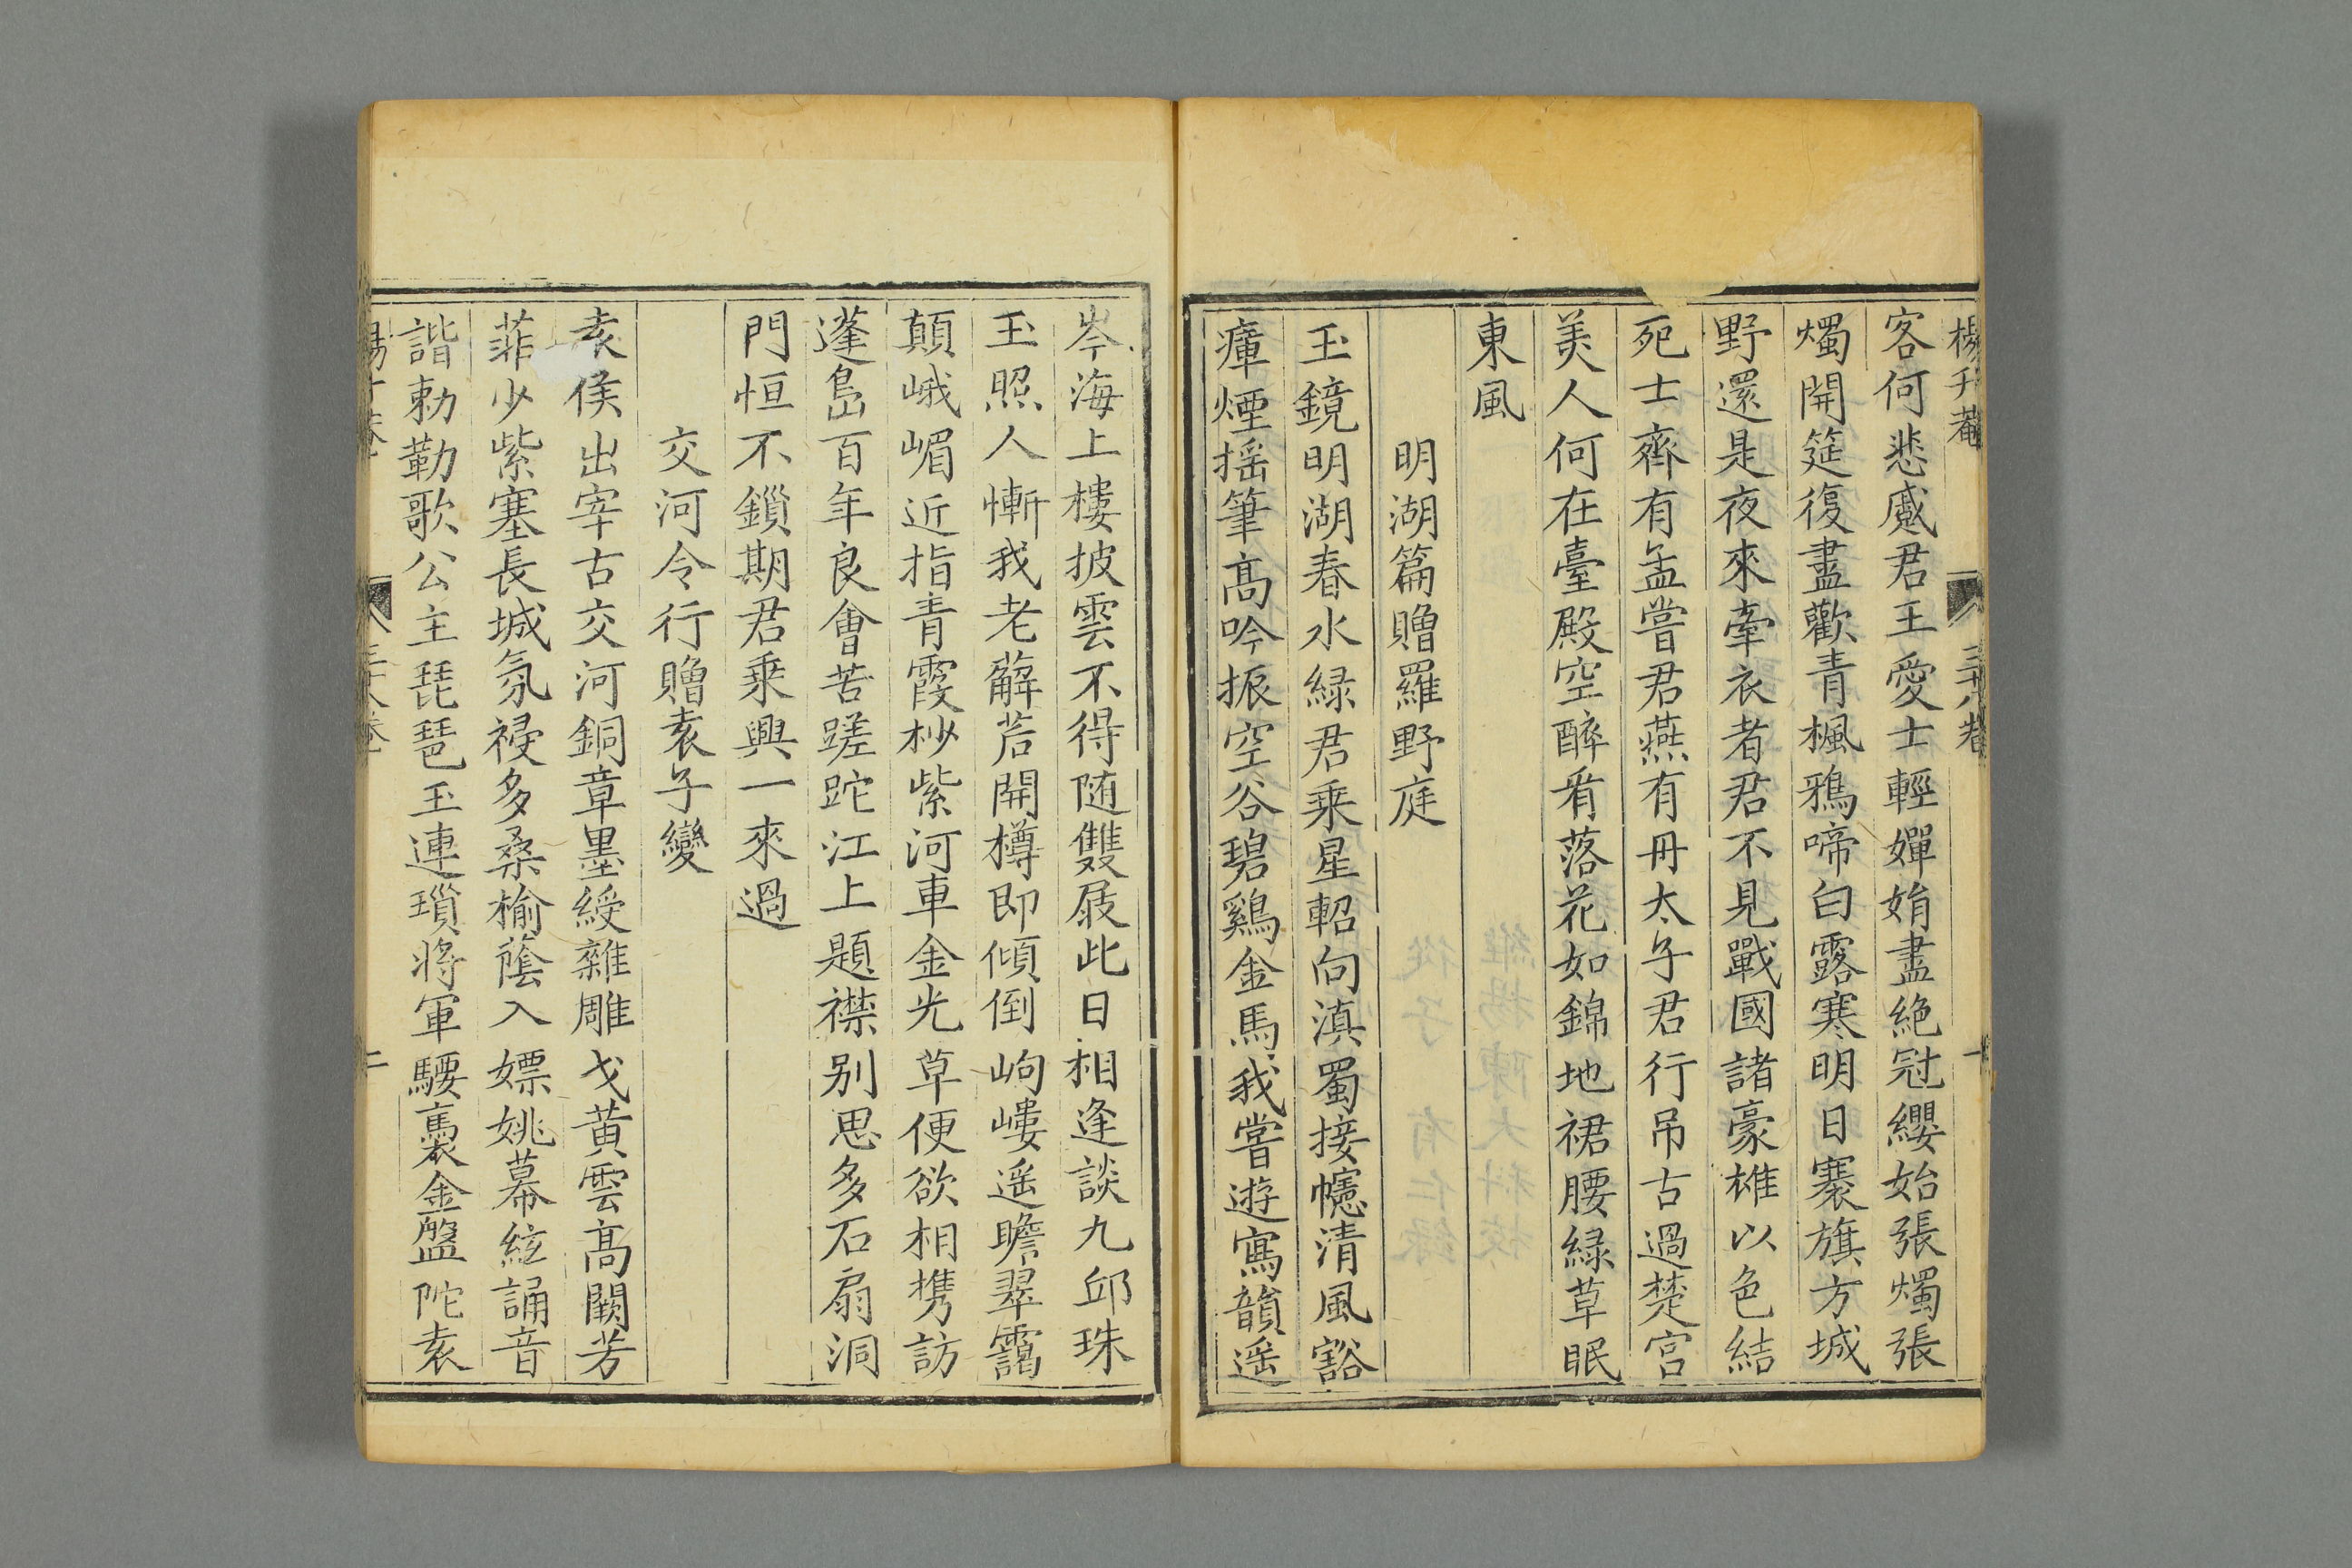 楊升菴
三十八卷
一
客何悲慼君王愛士輕嬋娟盡絶冠纓始張燭張
燭開筵復盡歡青楓鴉啼白露寒明日褰旗方城
野還是夜來牽衣者君不見戰國諸豪雄以色結
死士齊有孟嘗君燕有丹太子君行吊古過楚宫
美人何在臺殿空醉看落花如錦地裙腰緑草眠
東風
明湖篇贈羅野庭
玉鏡明湖春水緑君乘星軺向滇蜀接幰清風豁
瘴煙揺筆髙吟振空谷碧鷄金馬我嘗遊寫韻遥
岑海上樓披雲不得随雙屐此日相逢談九邱珠
玉照人慚我老薜荔開樽即傾倒岣嶁遥瞻翠靄
顛峨嵋近指青霞杪紫河車金光草便欲相携訪
蓬島百年良會苦蹉跎江上題襟别思多石扇洞
門恒不鎖期君乘興一來過
交河令行贈袁子變
袁侯出宰古交河銅章墨綬雜雕戈黄雲髙闕芳
菲少紫塞長城氛祲多桑榆蔭入嫖姚幕絃誦音
諧勅勒歌公主琵琶玉連瑣將軍騕褭金盤陀袁